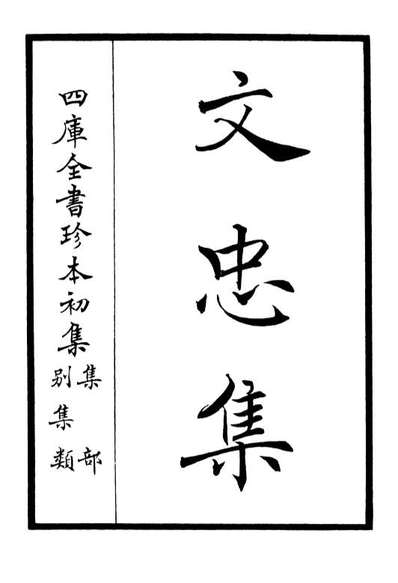 文忠集
四庫全書珍本初集
集部
別集類